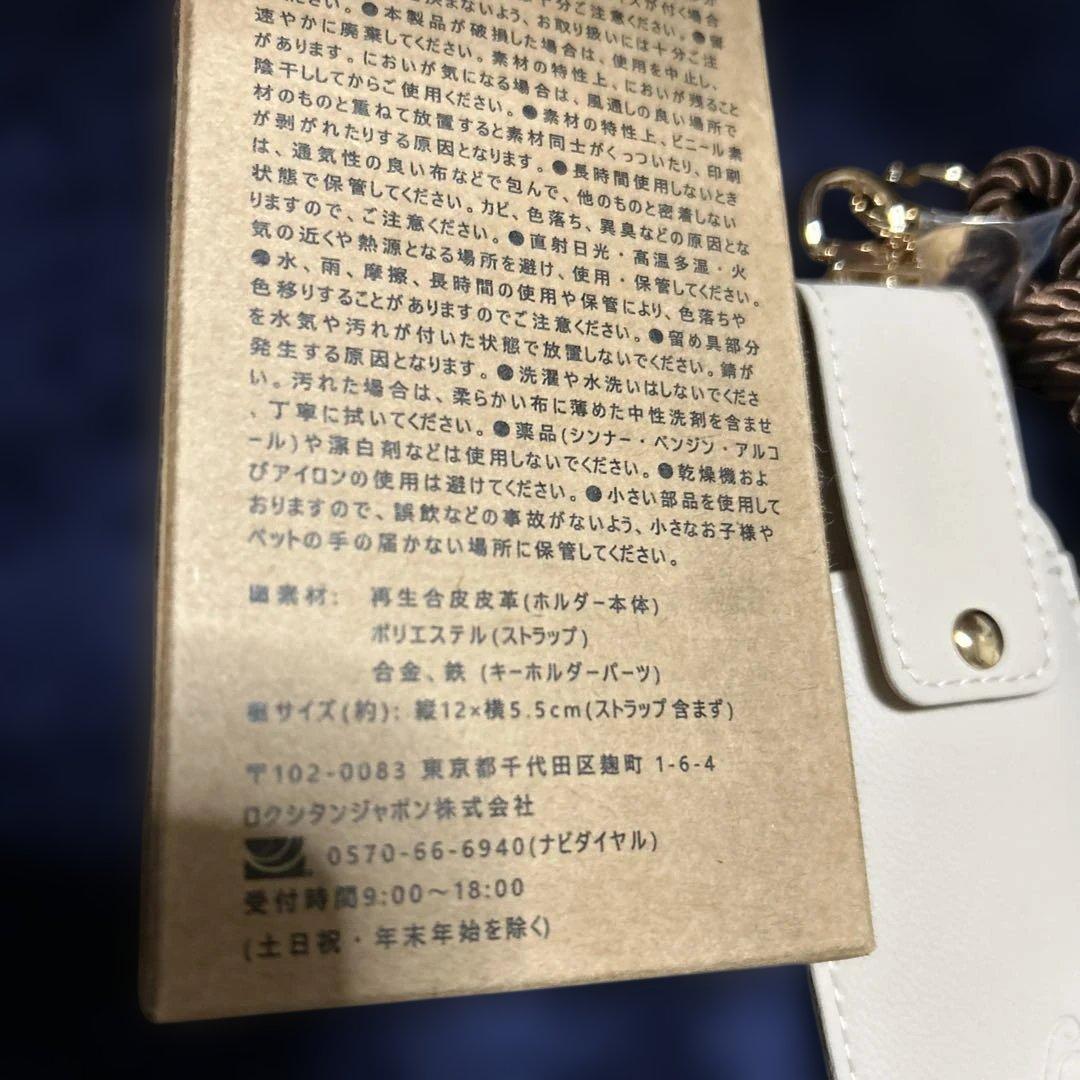 が付く場合
ないよう、お取り扱いには十分ご注
ださい。●本製品が破損した場合は、使用を中止し、
速やかに廃棄してください。素材の特性上、においが残ること
があります。においが気になる場合は、風通しの良い場所で
陰干ししてからご使用ください。●素材の特性上、ビニール素
材のものと重ねて放置すると素材同士がくっついたり、印刷
が剥がれたりする原因となります。●長時間使用しないとき
は、通気性の良い布などで包んで、他のものと密着しない
状態で保管してください。カビ、色落ち、異臭などの原因とな
りますので、ご注意ください。●直射日光・高温多湿・火
気の近くや熱源となる場所を避け、使用・保管してください。
●水、雨、摩擦、長時間の使用や保管により、色落ちや
色移りすることがありますのでご注意ください。●留め具部分
を水気や汚れが付いた状態で放置しないでください。錆が
発生する原因となります。●洗濯や水洗いはしないでくださ
い。汚れた場合は、柔らかい布に薄めた中性洗剤を含ませ
、丁寧に拭いてください。●薬品(シンナー・ベンジン・アルコ
ール)や漂白剤などは使用しないでください。●乾燥機およ
びアイロンの使用は避けてください。●小さい部品を使用して
おりますので、誤飲などの事故がないよう、小さなお子様や
ペットの手の届かない場所に保管してください。
素材: 再生合皮皮革(ホルダー本体)
ポリエステル(ストラップ)
合金、鉄 (キーホルダーパーツ)
サイズ(約): 縦12×横5.5cm(ストラップ含まず)
〒102-0083 東京都千代田区麹町 1-6-4
ロクシタンジャポン株式会社
0570-66-6940(ナビダイヤル)
受付時間9:00～18:00
(土日祝・年末年始を除く)